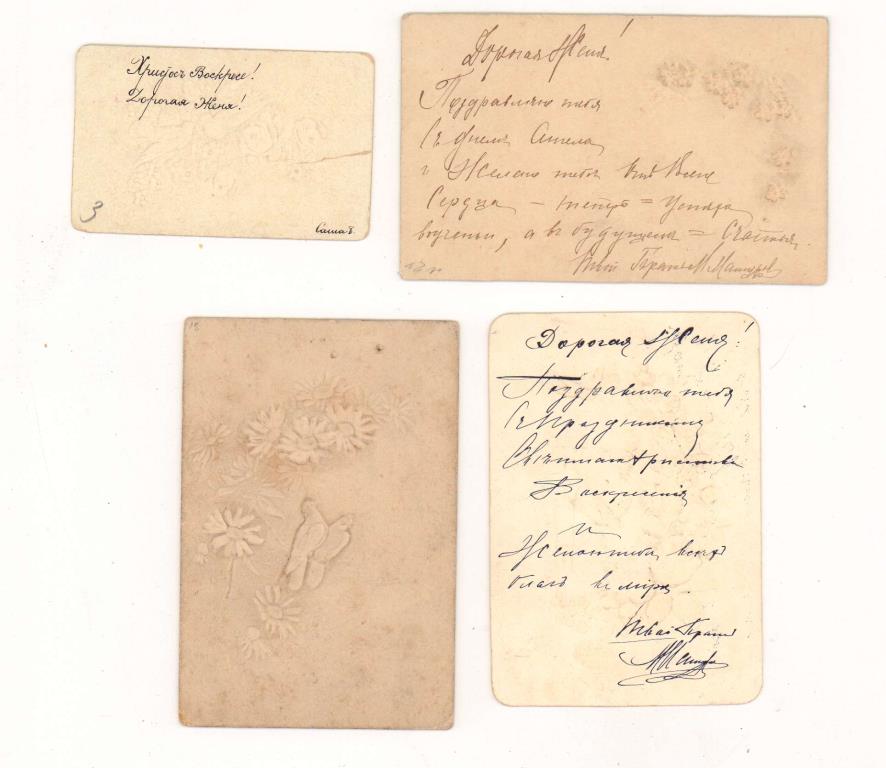 Христосъ Воскресе!
Дорогая Женя!
3
Саша
Дорогая Женя!
Поздравляю тебя
Съ днемъ Ангела
и Желаю тебѣ отъ всего
Сердца – = успѣха
въ ученьи, а въ будущемъ = Счастья.
твой Братъ М.
18
Дорогая Женя!
Поздравляю тебя
Съ Праздникомъ
Свѣтлаго Христова
Воскресенія
и
Желаю тебѣ всѣхъ
благъ въ мірѣ.
твой Братъ